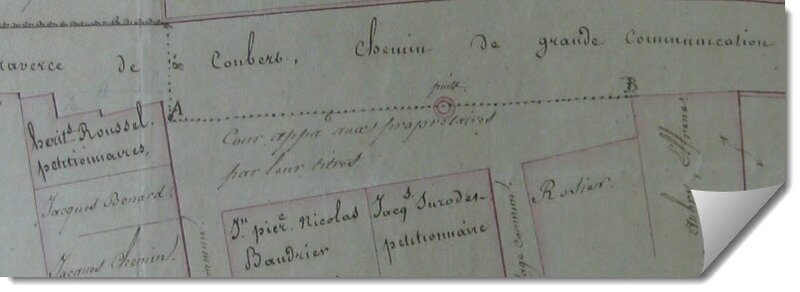 traverse de Coubert, Chemin de grande Communication
puits
A
B
Cour app.t aux propriétaires
par leur titres
herit.s Roussel.
petitionnaires,
Jacques Benard.
Jacques Chemin.
J.n pier.e Nicolas
Baudrier
Jacq.s Surodes-
petitionnaire
Rosier.